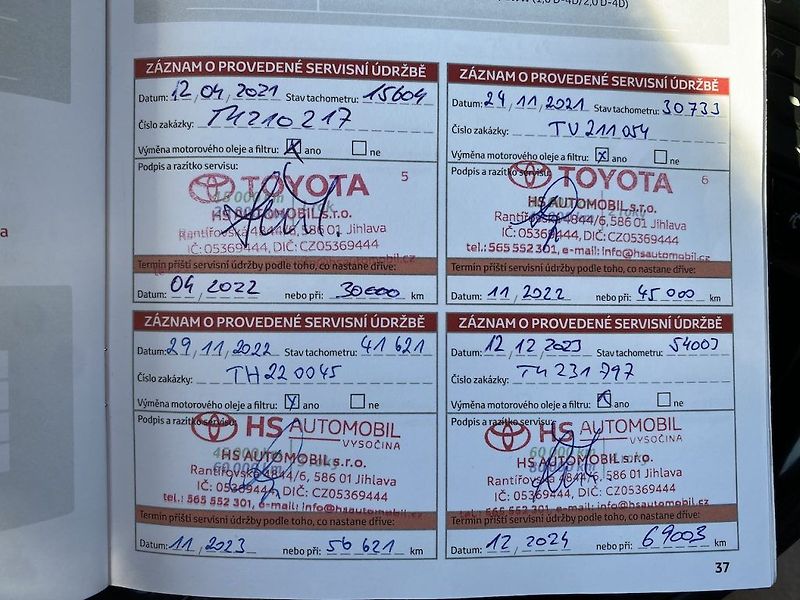 (1,0 D-4D/2,0 D-4D)
ZÁZNAM O PROVEDENÉ SERVISNÍ ÚDRŽBĚ
Datum: 12 / 04 / 2021 Stav tachometru: 15604
Číslo zakázky: TH210217
Výměna motorového oleje a filtru: ano ne
Podpis a razítko servisu:
5
TOYOTA
HS AUTOMOBIL s.r.o.
Rantířovská 4844/6, 586 01 Jihlava
IČ: 05369444, DIČ: CZ05369444
Termín příští servisní údržby podle toho, co nastane dříve:
Datum: 04 / 2022 nebo při: 30000 km
ZÁZNAM O PROVEDENÉ SERVISNÍ ÚDRŽBĚ
Datum: 24 / 11 / 2021 Stav tachometru: 30733
Číslo zakázky: TV211054
Výměna motorového oleje a filtru: x ano ne
Podpis a razítko servisu:
6
TOYOTA
HS AUTOMOBIL s.r.o.
Rantířovská 4844/6, 586 01 Jihlava
IČ: 05369444, DIČ: CZ05369444
tel.: 565 552 301, e-mail: info@hsautomobil.cz
Termín příští servisní údržby podle toho, co nastane dříve:
Datum: 11 / 2022 nebo při: 45 000 km
ZÁZNAM O PROVEDENÉ SERVISNÍ ÚDRŽBĚ
Datum: 29 / 11 / 2022 Stav tachometru: 41621
Číslo zakázky: TH220045
Výměna motorového oleje a filtru: ano ne
Podpis a razítko servisu:
HS AUTOMOBIL
VYSOČINA
HS AUTOMOBIL s.r.o.
Rantířovská 4844/6, 586 01 Jihlava
IČ: 05369444, DIČ: CZ05369444
tel.: 565 552 301, e-mail: info@hsautomobil.cz
Termín příští servisní údržby podle toho, co nastane dříve:
Datum: 11 / 2023 nebo při: 56 621 km
ZÁZNAM O PROVEDENÉ SERVISNÍ ÚDRŽBĚ
Datum: 12 / 12 / 2023 Stav tachometru: 54003
Číslo zakázky: TH231797
Výměna motorového oleje a filtru: ano ne
Podpis a razítko servisu:
HS AUTOMOBIL
VYSOČINA
HS AUTOMOBIL s.r.o.
Rantířovská 4844/6, 586 01 Jihlava
IČ: 05369444, DIČ: CZ05369444
tel.: 565 552 301, e-mail: info@hsautomobil.cz
Termín příští servisní údržby podle toho, co nastane dříve:
Datum: 12 / 2024 nebo při: 69003 km
37